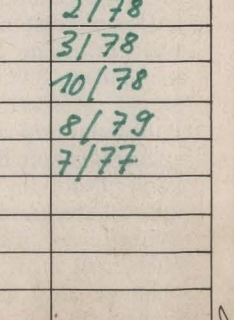 2/78
3/78
10/78
8/79
7/77